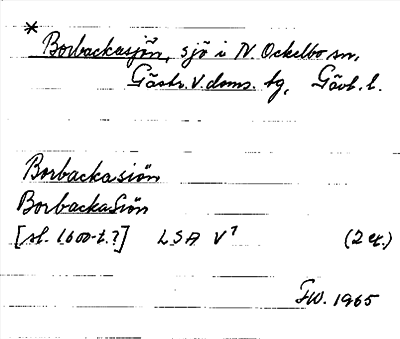 *
Borbackasjön, sjö i N. Ockelbo sn,
Gästr. V. doms. tg, Gävl. l.
Borbackasiön
BorbackaSiön
[sl. 1600-t.?] LSA V¹ (2 ex.)
FW. 1965